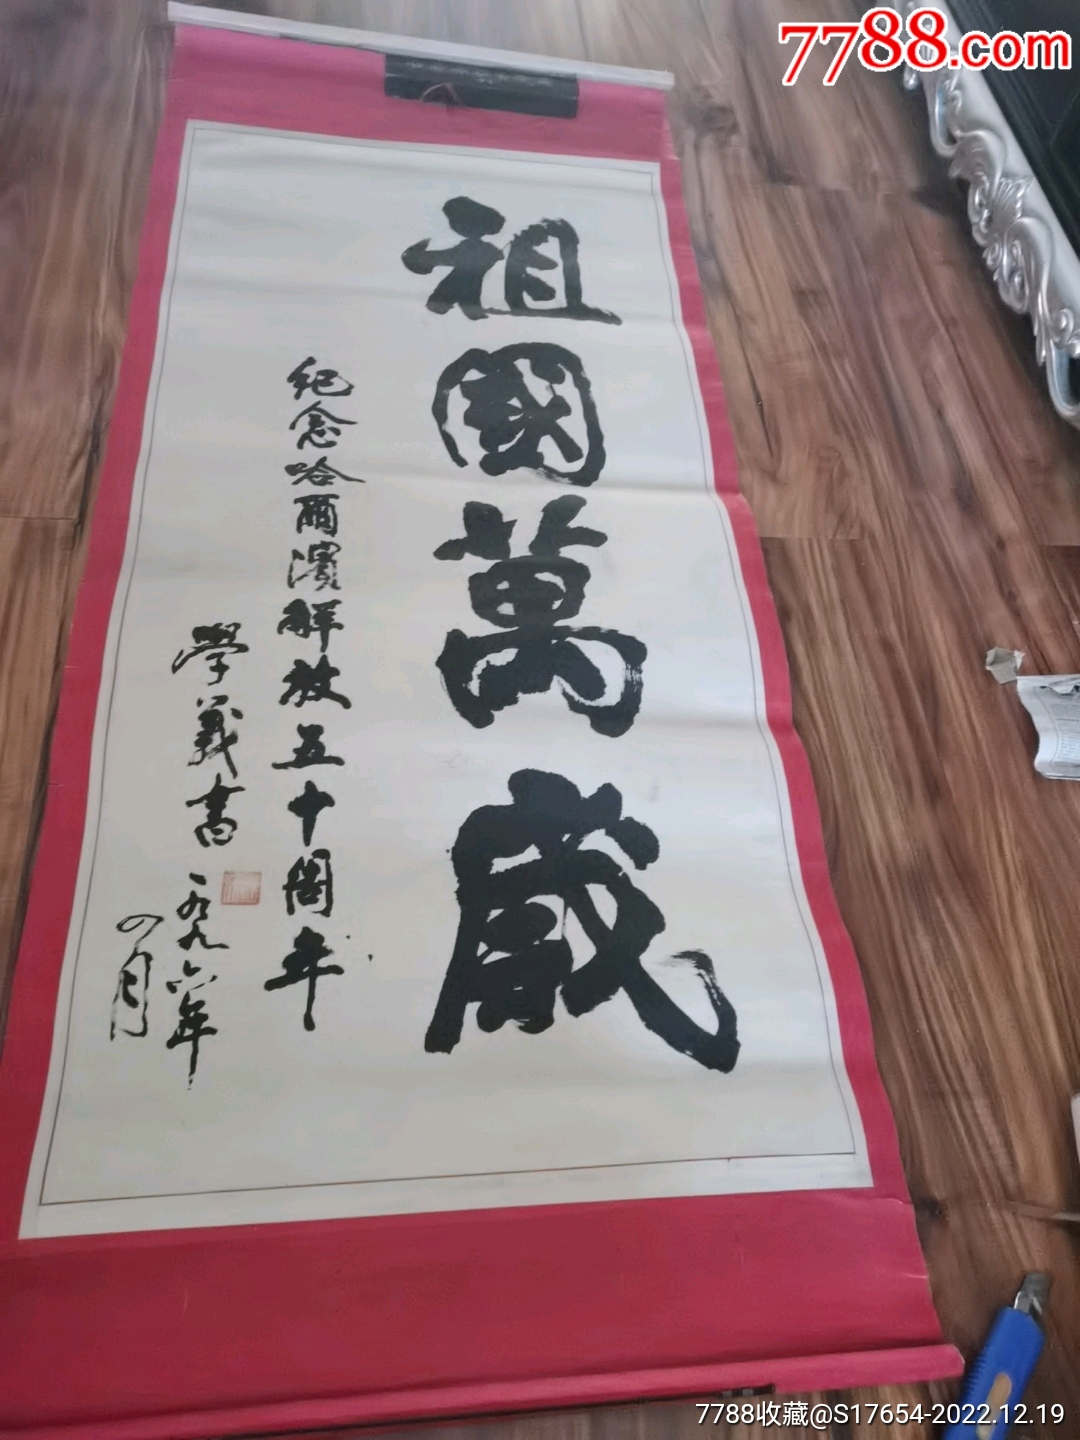 7788.com
祖國萬歲
紀念哈爾濱解放五十周年
學義書
一九九六年
四月
7788收藏@S17654-2022.12.19